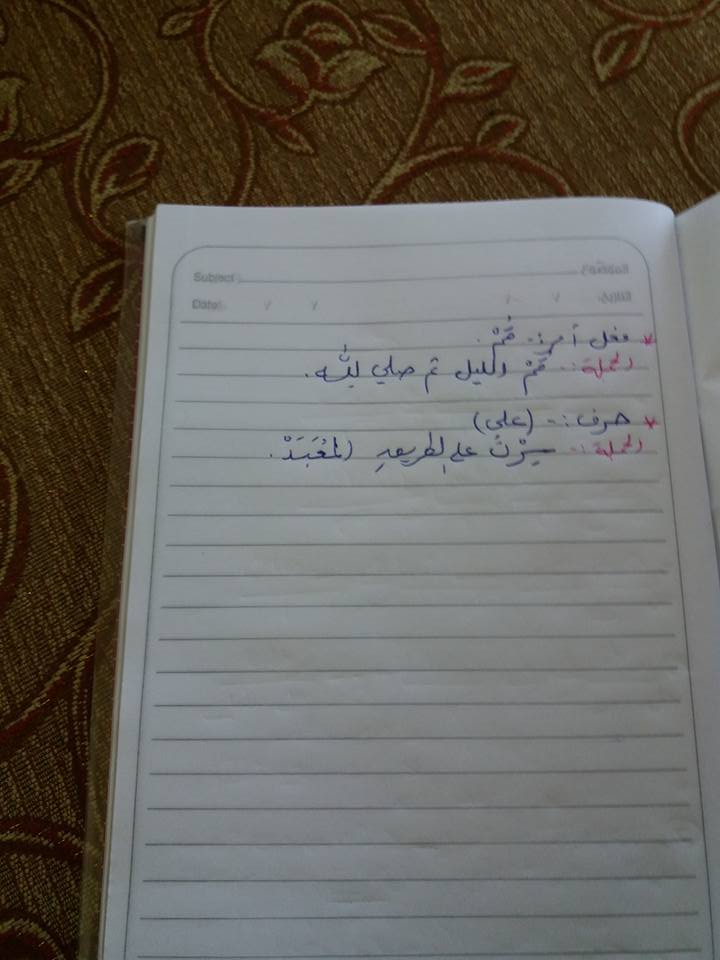 Subject: الموضوع
Date: / / / / التاريخ
* فعل أمر :- قُمْ.
الجملة :- قُمْ الليل ثم صلي لله.
* حرف :- (على)
الجملة :- سِرْتُ على الطريقِ المُعَبَدْ.